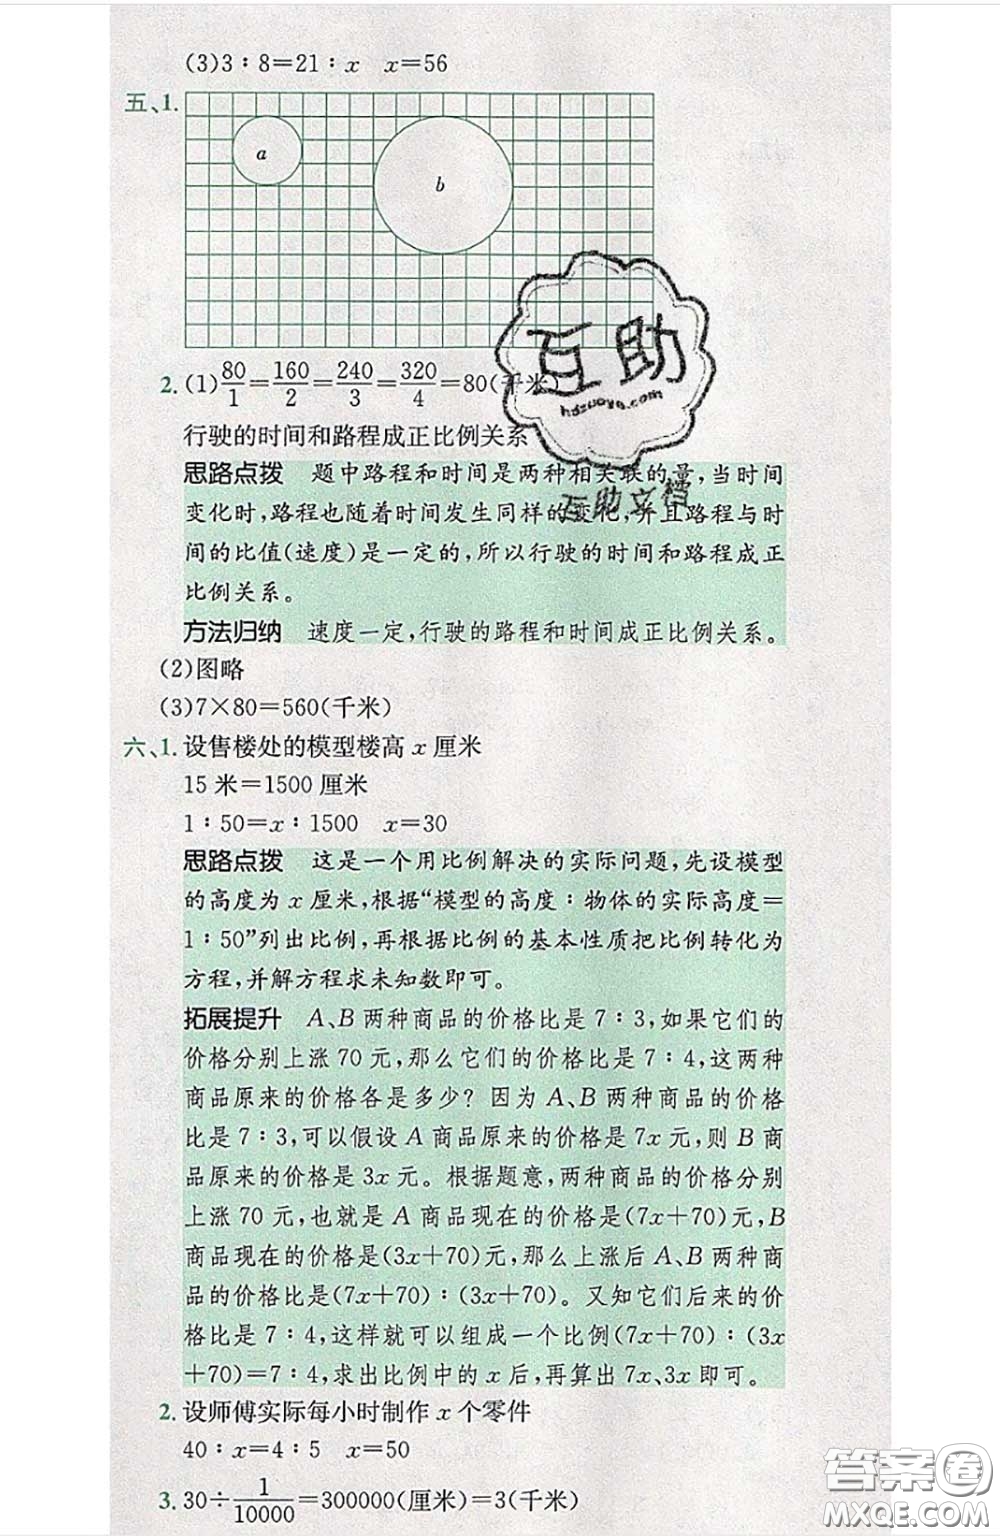 (3)3∶8=21∶x x=56
五、1.
a
b
2. (1)80/1=160/2=240/3=320/4=80(千米)
行驶的时间和路程成正比例关系
思路点拨 题中路程和时间是两种相关联的量,当时间
变化时,路程也随着时间发生同样的变化,并且路程与时
间的比值(速度)是一定的,所以行驶的时间和路程成正
比例关系。
方法归纳 速度一定,行驶的路程和时间成正比例关系。
(2)图略
(3)7×80=560(千米)
互助
hdzuoye.com
互助文档
六、1. 设售楼处的模型楼高 x 厘米
15 米=1500 厘米
1∶50=x∶1500 x=30
思路点拨 这是一个用比例解决的实际问题,先设模型
的高度为 x 厘米,根据“模型的高度∶物体的实际高度=
1∶50”列出比例,再根据比例的基本性质把比例转化为
方程,并解方程求未知数即可。
拓展提升 A、B 两种商品的价格比是 7∶3,如果它们的
价格分别上涨 70 元,那么它们的价格比是 7∶4,这两种
商品原来的价格各是多少? 因为 A、B 两种商品的价格
比是 7∶3,可以假设 A 商品原来的价格是 7x 元,则 B 商
品原来的价格是 3x 元。根据题意,两种商品的价格分别
上涨 70 元,也就是 A 商品现在的价格是(7x+70)元,B
商品现在的价格是(3x+70)元,那么上涨后 A、B 两种商
品的价格比是(7x+70)∶(3x+70)。又知它们后来的价
格比是 7∶4,这样就可以组成一个比例(7x+70)∶(3x
+70)=7∶4,求出比例中的 x 后,再算出 7x、3x 即可。
2. 设师傅实际每小时制作 x 个零件
40∶x=4∶5 x=50
3. 30÷1/10000=300000(厘米)=3(千米)
答案圈
MXQE.COM